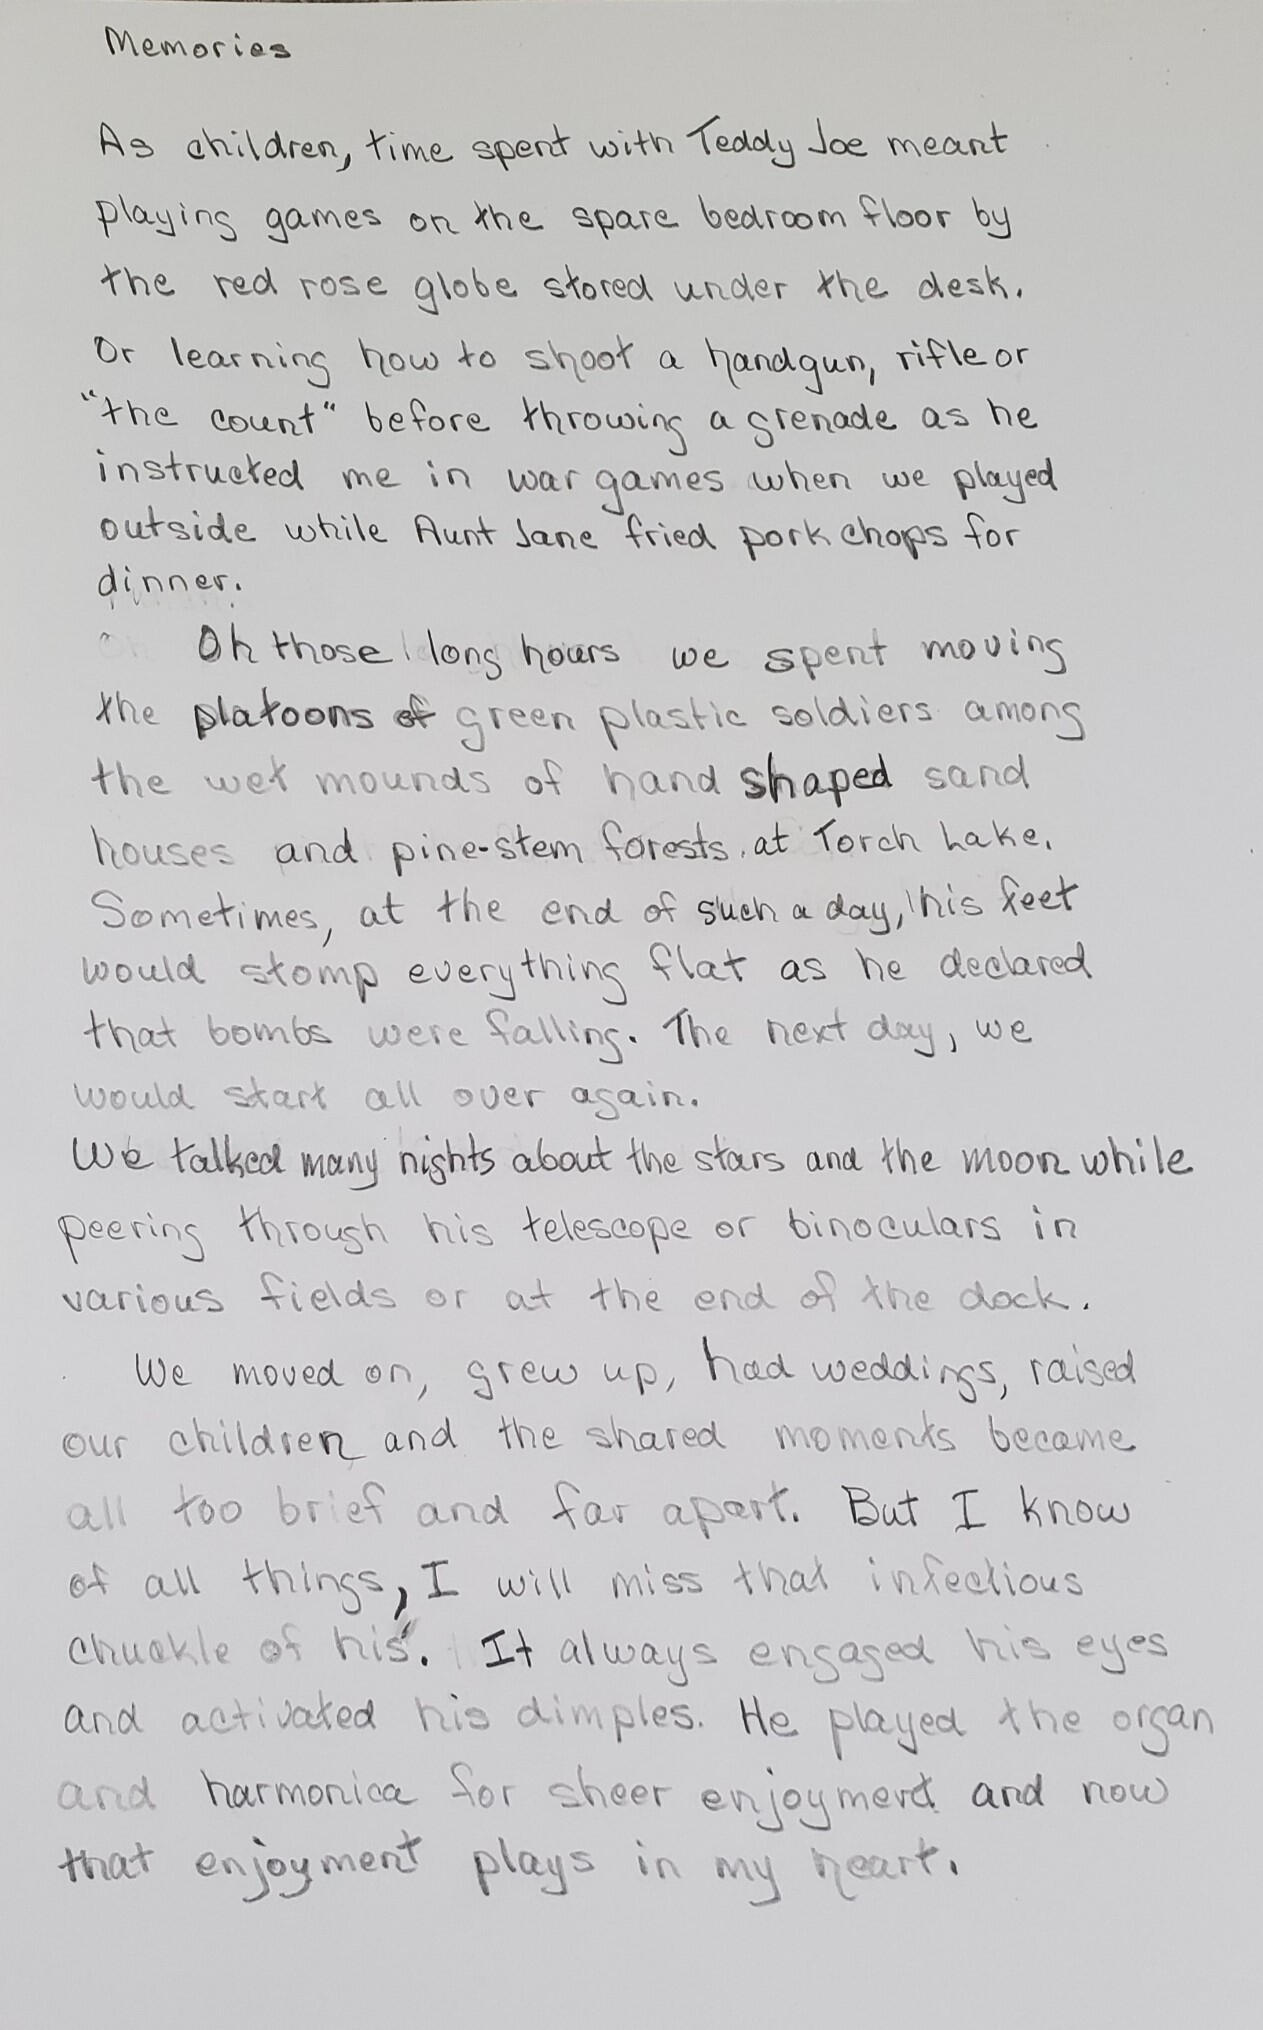 Memories
As children, time spent with Teddy Joe meant
playing games on the spare bedroom floor by
the red rose globe stored under the desk.
Or learning how to shoot a handgun, rifle or
"the count" before throwing a grenade as he
instructed me in war games when we played
outside while Aunt Jane fried pork chops for
dinner.
Oh those long hours we spent moving
the platoons of green plastic soldiers among
the wet mounds of hand shaped sand
houses and pine-stem forests at Torch Lake.
Sometimes, at the end of such a day, his feet
would stomp everything flat as he declared
that bombs were falling. The next day, we
would start all over again.
We talked many nights about the stars and the moon while
peering through his telescope or binoculars in
various fields or at the end of the dock.
We moved on, grew up, had weddings, raised
our children and the shared moments became
all too brief and far apart. But I know
of all things, I will miss that infectious
chuckle of his. It always engaged his eyes
and activated his dimples. He played the organ
and harmonica for sheer enjoyment and now
that enjoyment plays in my heart.